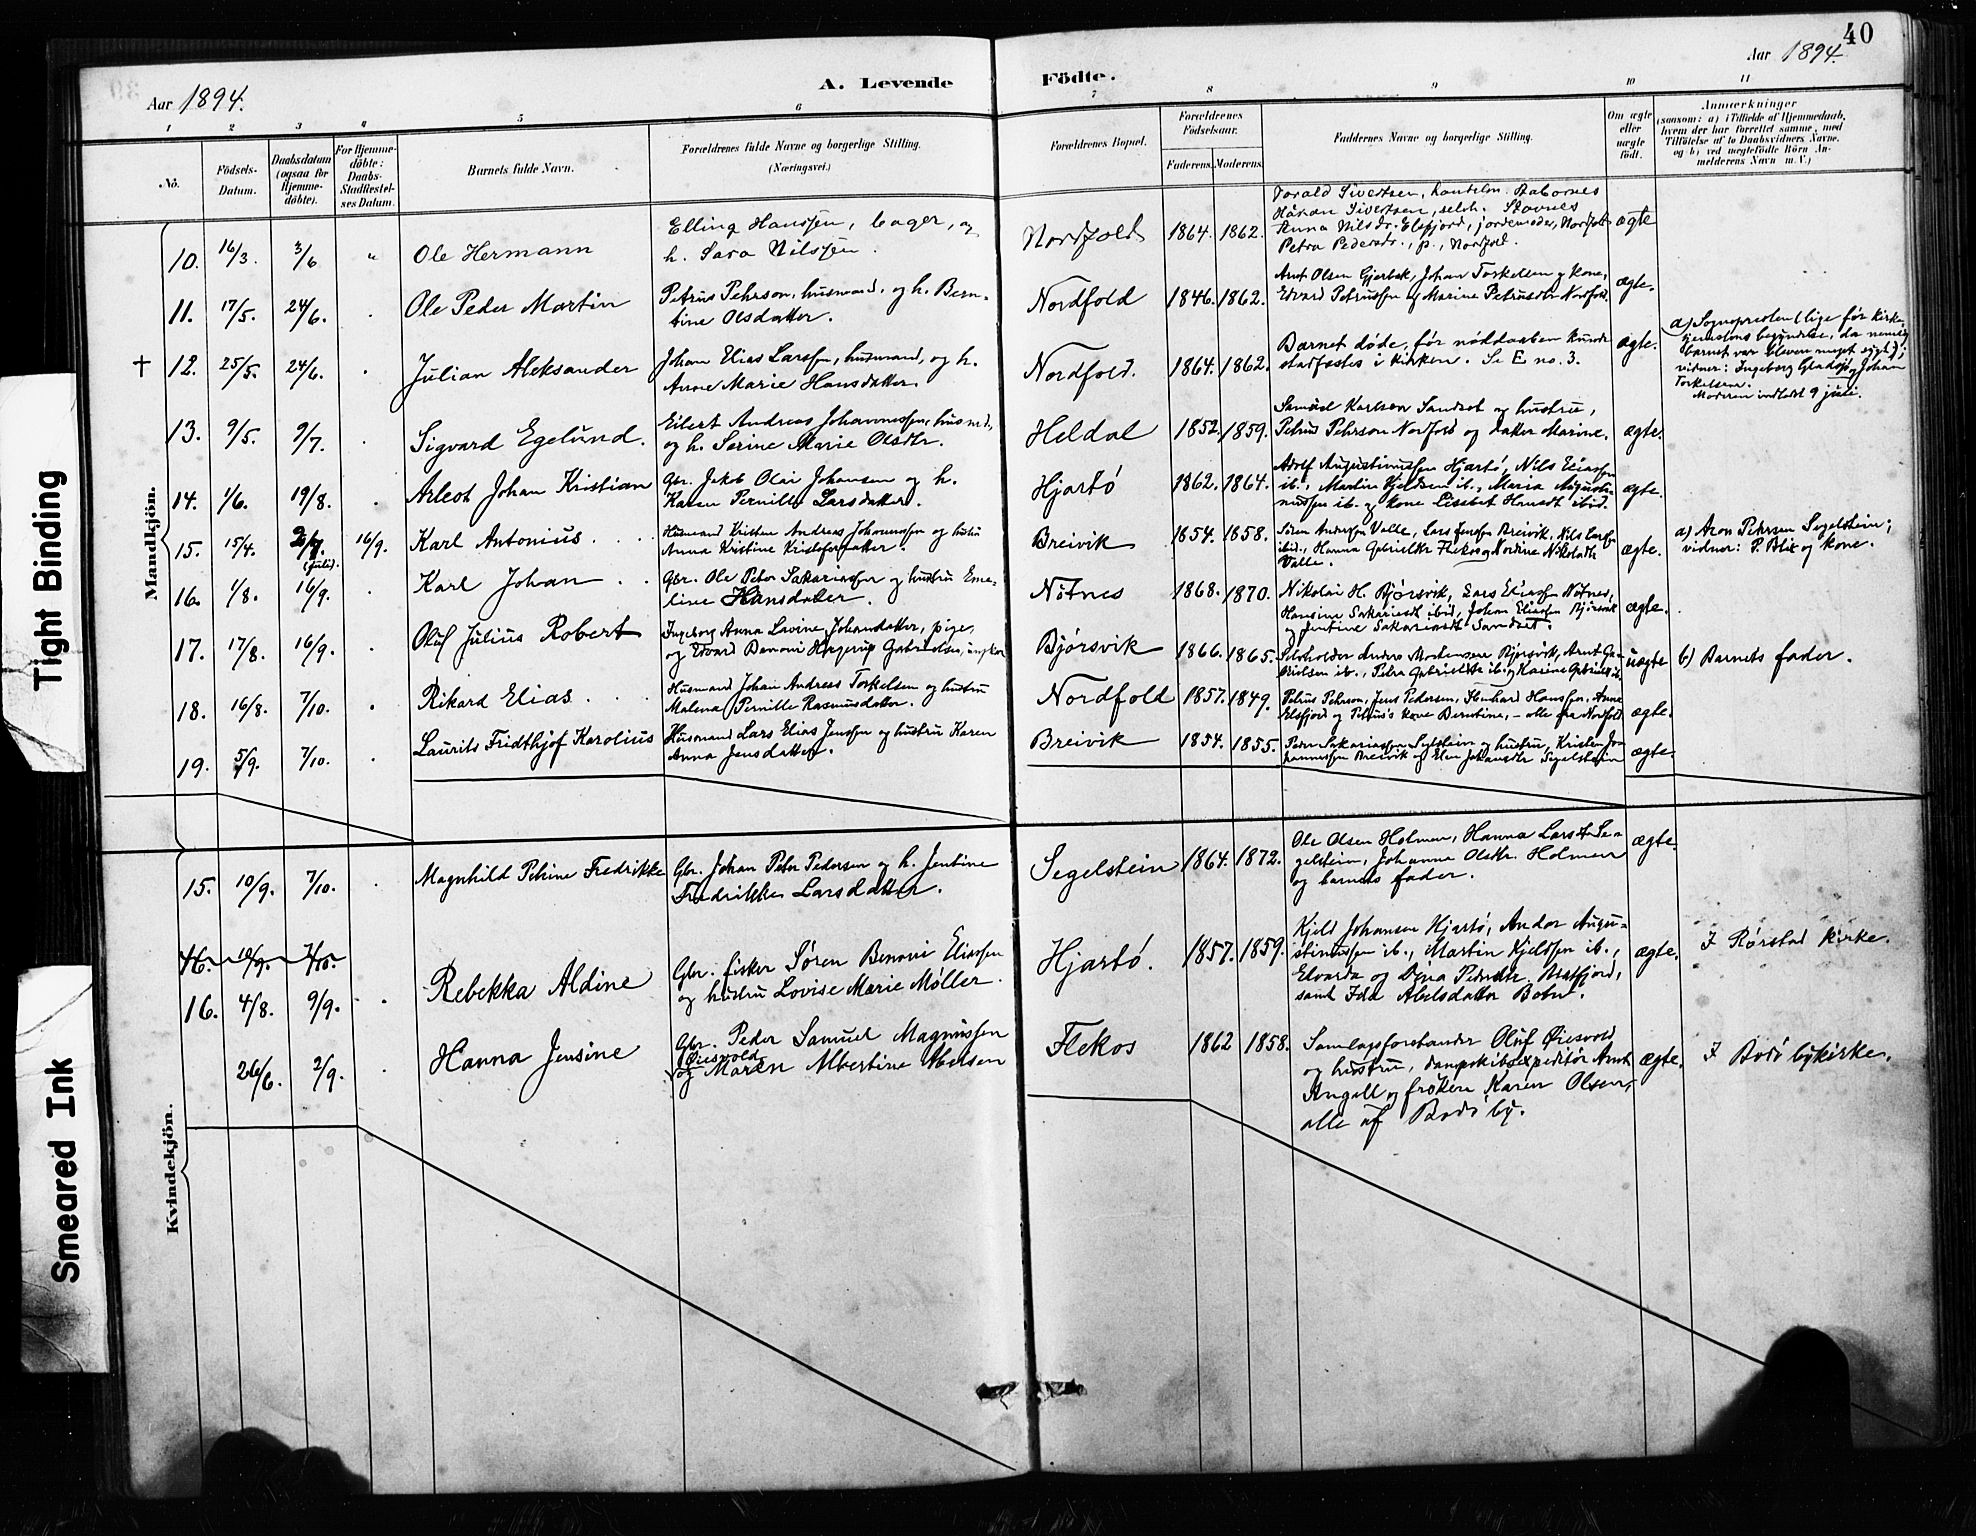 40
Aar 1894.
A. Levende
Födte.
Aar 1894.
1 2 3 4 5 6 7 8 9 10 11
Nö.
Födsels-
Datum.
Daabsdatum
(ogsaa for
Hjemme-
döbte).
For Hjemme-
döbte:
Daabs-
Stadfæstel-
ses Datum.
Barnets fulde Navn.
Forældrenes fulde Navne og borgerlige Stilling.
(Næringsvei.)
Forældrenes Bopæl.
Forældrenes
Födselsaar.
Faderens. Moderens.
Faddernes Navne og borgerlige Stilling.
Om ægte
eller
uægte
födt.
Anmærkninger
(saasom: a) i Tilfælde af Hjemmedaab,
hvem der har forrettet samme, med
Tilföielse af to Daabsvidners Navne,
og b) ved uægtefödte Börn An-
melderens Navn m. V.)
Mandkjön.
10. 16/3. 3/6 " Ole Hermann
Elling Hanssen, bager, og
h. Sara Nilssen.
Nordfold 1864. 1862.
Torald Sivertsen,
Håkan Sivertsen, selvh. Stavnes
Anna Nilsdr. Elsfjord, jordemoder, Nordfold
Petra Pedersdr., p., Nordfold.
ægte
11. 17/5. 24/6. Ole Peder Martin
Petrus Pehrson, husmand, og h. Bern-
tine Olsdatter.
Nordfold 1846. 1862.
Arnt Olsen Gjerbak, Johan Torkelsen og kone,
Edvard Petrussen og Marine Petrusdtr Nordfold.
ægte.
† 12. 25/5. 24/6. Julian Aleksander
Johan Elias Larssen, husmand, og h.
Anne Marie Hansdatter.
Nordfold. 1864. 1862.
Barnet døde, før nöddaaben kunde
stadfæstes i kirken. Se E no. 3.
ægte.
a) Sognepresten (lige før kirke-
tjenestens begyndelse, da nemlig
barnet var bleven meget sygt);
vidner: Ingeborg Gladsø og Johan
Torkelsen.
Moderen indledet 9 juli.
13. 9/5. 9/7. Sigvard Egelund.
Eilert Andreas Johannessen, husmd,
og h. Serine Marie Olsdtr.
Heldal 1852. 1859.
Samuel Karlsen Sandset og hustru,
Petrus Pehrson Nordfold og datter Marine.
ægte.
14. 1/6. 19/8. Arleot Johan Kristian
Gbr. Jakob Olai Johansen og h.
Karen Pernille Larsdatter.
Hjartö 1862. 1864.
Adolf Augustinussen Hjartö, Nils Eliassen
ib., Martin Kjeldsen ib., Maria Augusti-
nussen ib. og kone Lisbet ibid.
ægte.
15. 15/4. 2/7. (juli). 16/9. Karl Antonius.
Husmand Kristen Andreas Johannessen og hustru
Anna Kristine Kristofersdatter.
Breivik 1854. 1858.
Sören Andersen Valle, Lars Jensen Breivik, Nils Larsen
ibid., Hanna Gabrielsdtr Flekos og Nordine Nikolaidtr
Valle.
ægte.
a) Aron Pehrsen Segelstein;
vidner: P. Blix og kone.
16. 1/8. 16/9. Karl Johan
Gbr. Ole Peter Sakariassen og hustru Eme-
line Hansdatter.
Nötnes 1868. 1870.
Nikolai H. Bjørsvik, Lars Eliassen Nötnes,
Hansine Sakariasdtr ibid, Johan Eliassen Bjørsvik
og Jentine Sakariasdtr Sandset.
ægte.
17. 17/8. 16/9. Oluf Julius Robert
Ingeborg Anna Lovine Johansdatter, pige,
og Edvard Benoni Hagerup Gabrielsen, ungkar
Bjørsvik 1866. 1865.
Selvholder Andreas Mortensen Bjørsvik, Arnt Ga-
brielsen ib., Petra Gabrielsdtr ib. og Karine Gabrielsdtr ib.
uægte
b) Barnets fader.
18. 16/8. 7/10. Rikard Elias.
Husmand Johan Andreas Torkelsen og hustru
Malena Pernille Rasmusdatter.
Nordfold 1857. 1849.
Petrus Pehrson, Jens Pedersen, Hanssen, Anna
Elsfjord og Petrus's kone Berntine, – alle fra Nordfold
ægte.
19. 5/9. 7/10. Laurits Fridthjof Karolius
Husmand Lars Elias Jenssen og hustru Karen
Anna Jensdatter.
Breivik 1854. 1855.
Peter Sakariassen Segelstein og hustru, Kristen Jo-
hannessen Breivik og Elen Johansdtr Segelstein
ægte.
Kvindekjön.
15. 10/9. 7/10. Magnhild Petrine Fredrikke
Gbr. Johan Peter Pedersen og h. Jentine
Fredrikke Larsdatter.
Segelstein 1864. 1872.
Ole Olsen Holman, Hanna Larsdtr Se-
gelstein, Johanna Olsdtr. Holman
og barnets fader.
ægte.
16. 10/9. 7/10.
16. 4/8. 9/9. Rebekka Aldine
Gbr. fisker Søren Benoni Eliassen
og hustru Lovise Marie Møller.
Hjartö. 1857. 1859.
Kjeld Johansen Hjartö, Andor Augu-
stinussen ib., Martin Kjeldsen ib.,
Edvarda og Dina Pedersdtr.
samt Ida Abelsdatter Botn.
ægte.
I Rørstad kirke.
26/6. 2/9. Hanna Jensine
Gbr. Peder Samuel Magnussen
Øresvold
og Maren Albertine Abelsen
Flekos 1862 1858.
Samlagsforstander Oluf Øresvold
og hustru, dampskibsexpeditör Arnt
Angell og fröken Karen Olsen,
alle af Bodö by.
ægte.
I Bodö bykirke.
Tight Binding
Smeared Ink